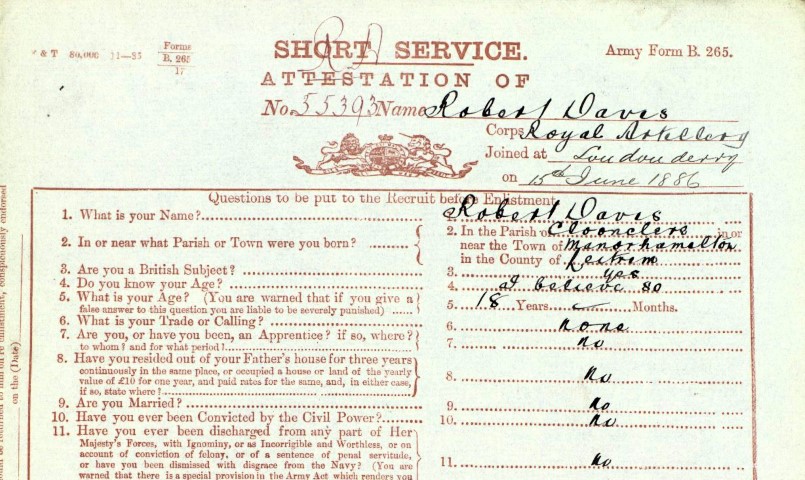 80,000 11—85 Forms B. 265 17
SHORT SERVICE. Army Form B. 265.
R A
ATTESTATION OF
No. 55393 Name Robert Davis
Corps Royal Artillery
Joined at Londonderry
on 15th June 1886
Questions to be put to the Recruit before Enlistment.
1. What is your Name? 1. Robert Davis
2. In or near what Parish or Town were you born? 2. In the Parish of Cloonclere in or
near the Town of Manorhamilton
in the County of Leitrim
3. Are you a British Subject? 3. yes
4. Do you know your Age? 4. I believe so
5. What is your Age? (You are warned that if you give a 5. 18 Years Months.
false answer to this question you are liable to be severely punished)
6. What is your Trade or Calling? 6. none
7. Are you, or have you been, an Apprentice? if so, where? 7. No
to whom? and for what period?
8. Have you resided out of your Father's house for three years
continuously in the same place, or occupied a house or land of the yearly
value of £10 for one year, and paid rates for the same, and, in either case, 8. No
if so, state where?
9. Are you Married? 9. No
10. Have you ever been Convicted by the Civil Power? 10. No
11. Have you ever been discharged from any part of Her
Majesty's Forces, with Ignominy, or as Incorrigible and Worthless, or on
account of conviction of felony, or of a sentence of penal servitude,
or have you been dismissed with disgrace from the Navy? (You are 11. No
warned that there is a special provision in the Army Act which renders you
on the (Date)